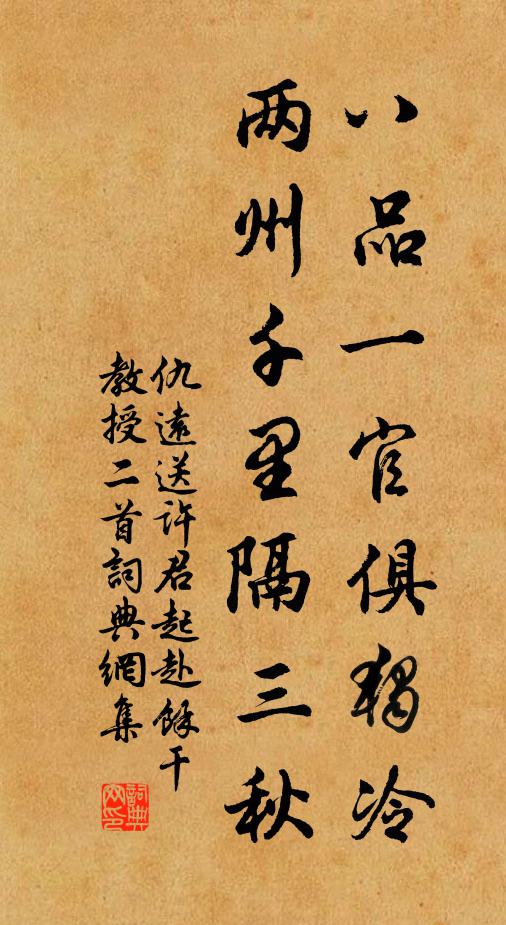 八品一官俱独冷
两州千里隔三秋
仇遠送许君起赴餘干
教授二首詞典網集
詞典
网印